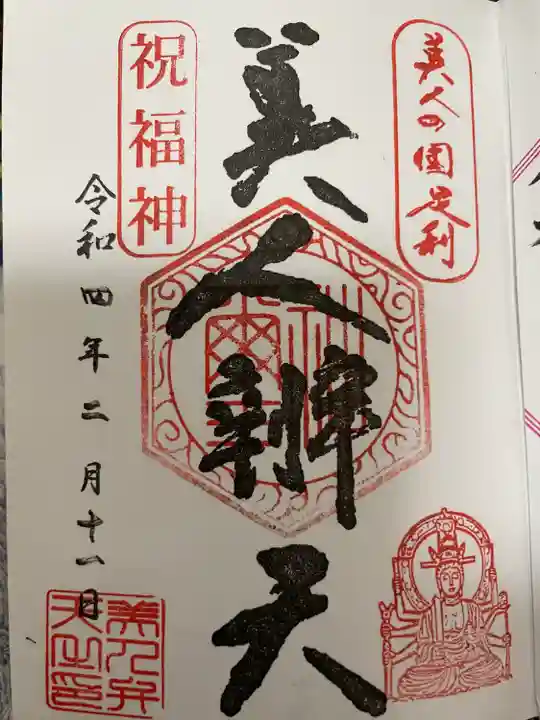 美人の国足利
美人辨天
祝福神
令和四年二月十一日
美人弁
天之印